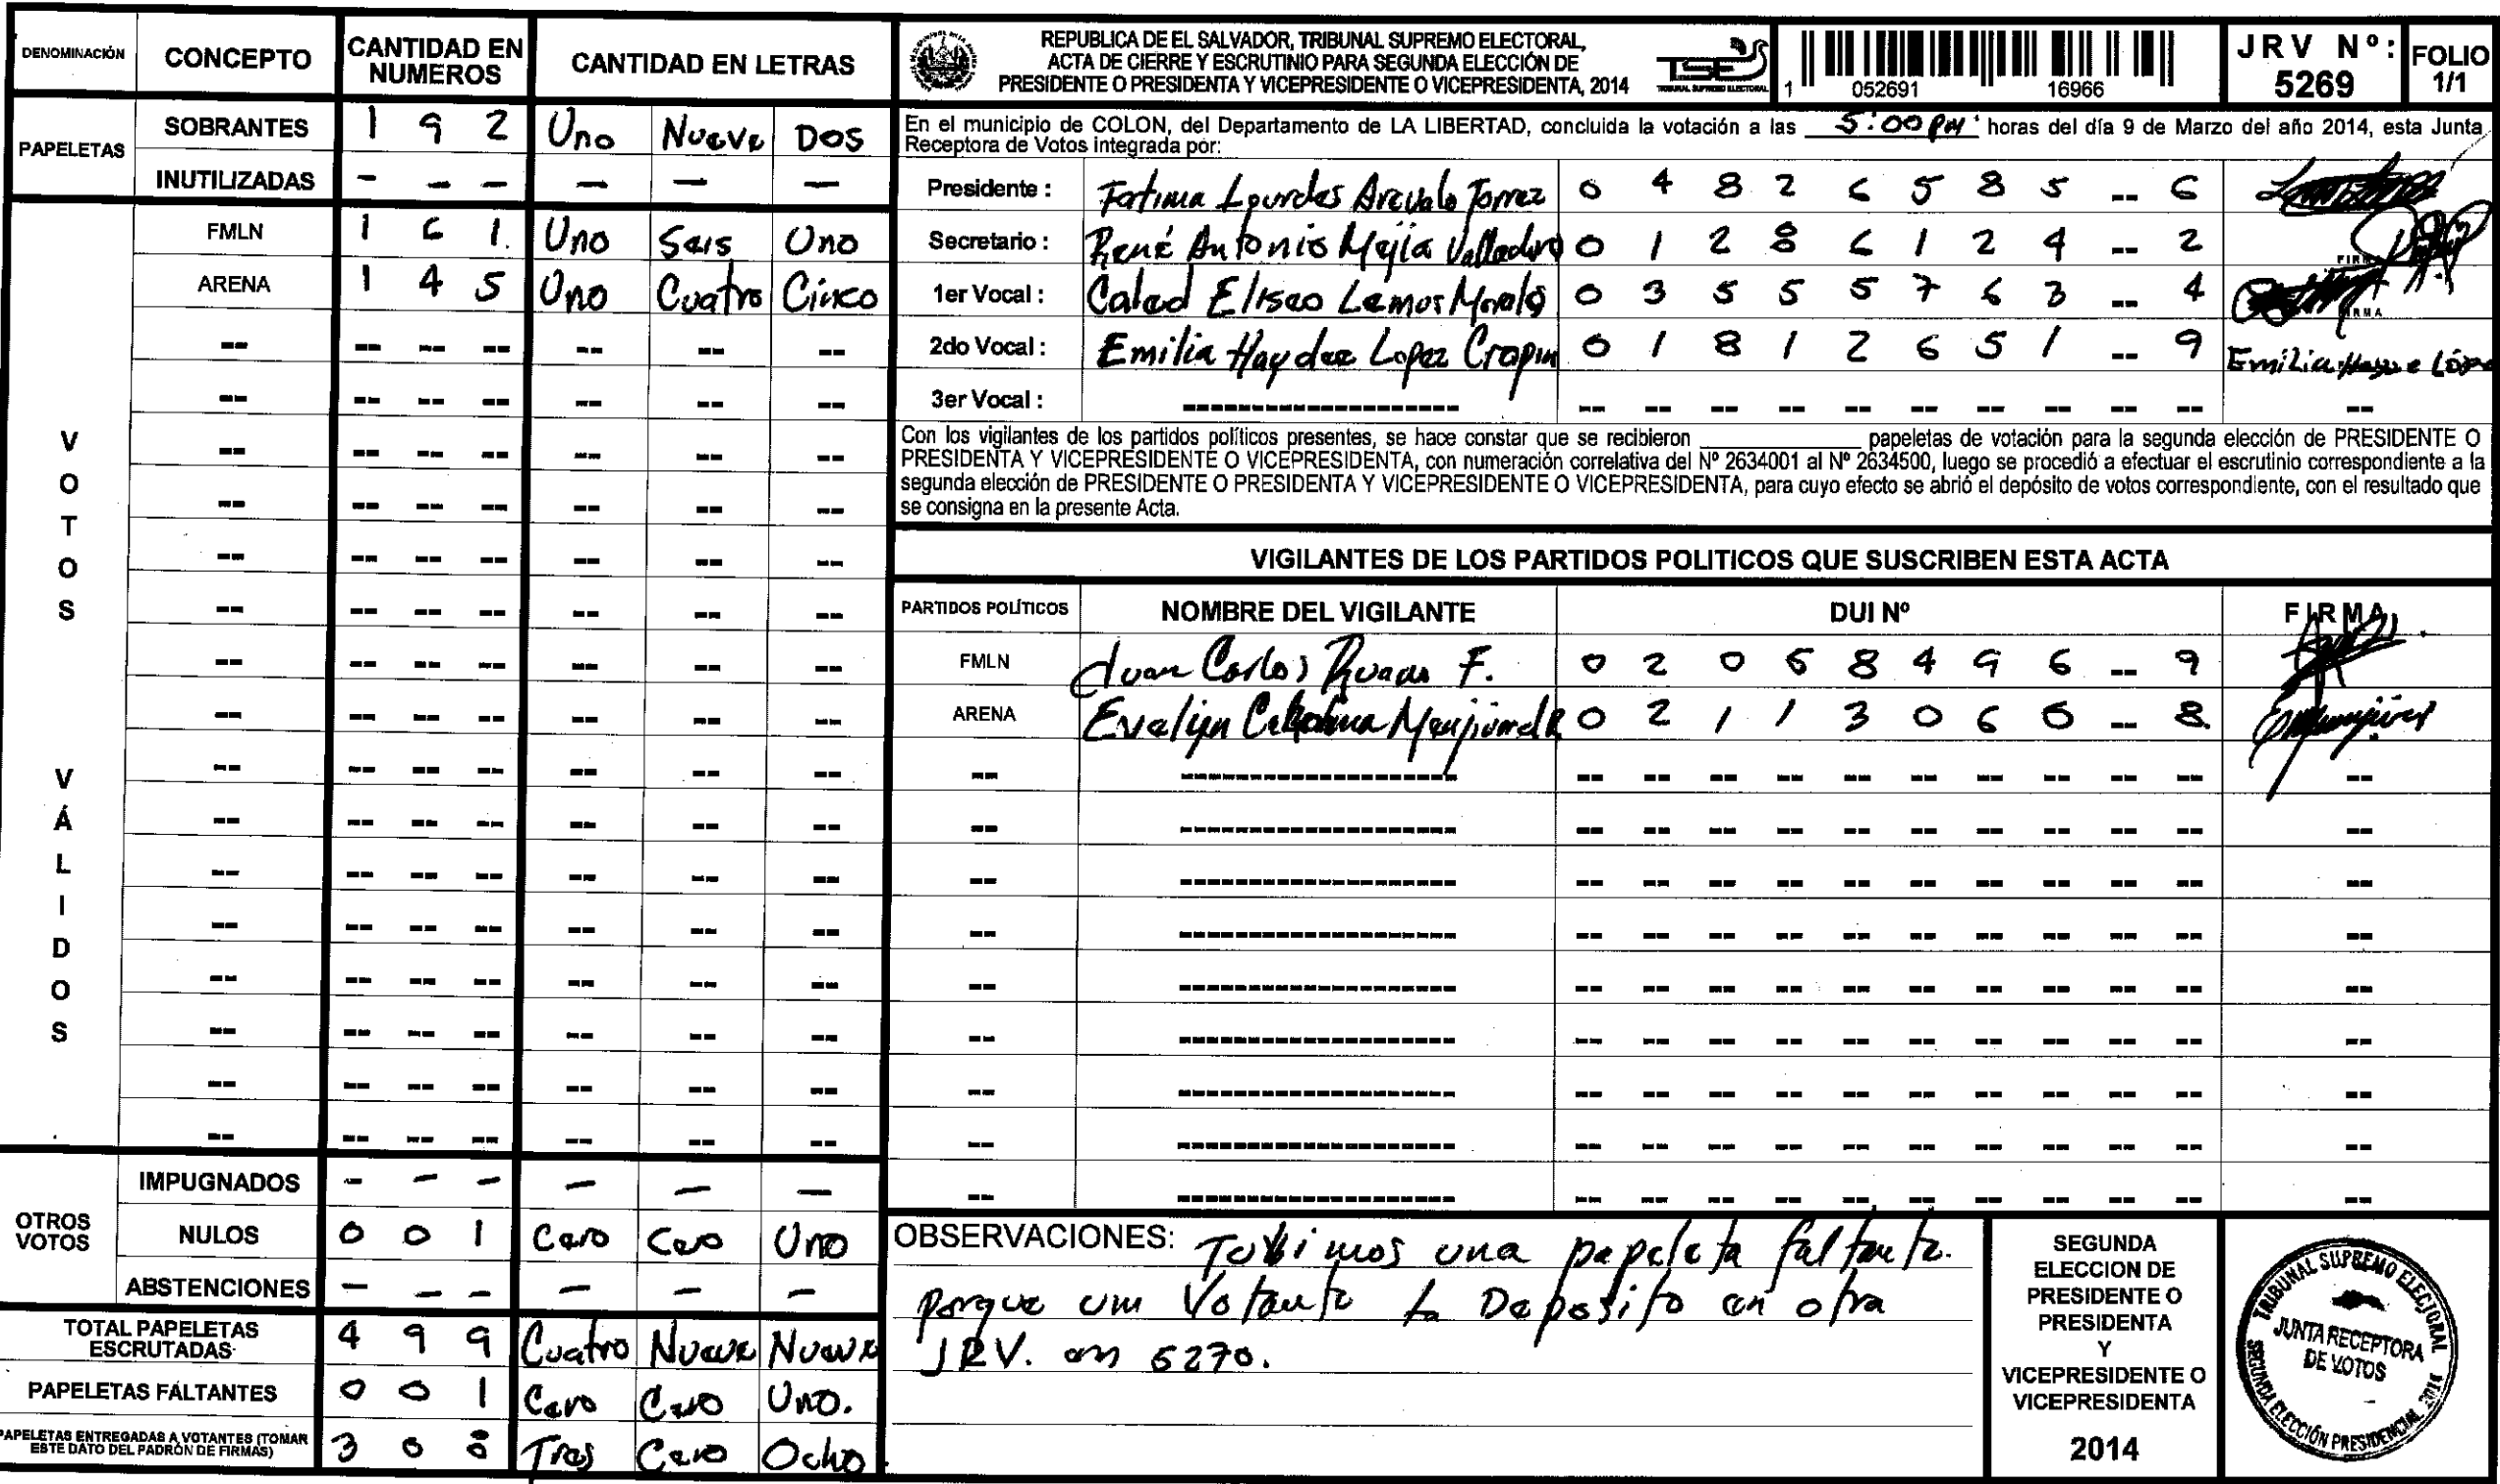 DENOMINACIÓN CONCEPTO CANTIDAD EN NUMEROS CANTIDAD EN LETRAS
PAPELETAS
SOBRANTES 1 9 2 Uno Nueve Dos
INUTILIZADAS - - - - - -
VOTOS VÁLIDOS
FMLN 1 6 1. Uno Seis Uno
ARENA 1 4 5 Uno Cuatro Cinco
OTROS VOTOS
IMPUGNADOS - - - - - -
NULOS 0 0 1 Cero Cero Uno
ABSTENCIONES - - - - - -
TOTAL PAPELETAS ESCRUTADAS 4 9 9 Cuatro Nueve Nueve
PAPELETAS FALTANTES 0 0 1 Cero Cero Uno.
PAPELETAS ENTREGADAS A VOTANTES (TOMAR ESTE DATO DEL PADRÓN DE FIRMAS) 3 0 8 Tres Cero Ocho
REPUBLICA DE EL SALVADOR, TRIBUNAL SUPREMO ELECTORAL,
ACTA DE CIERRE Y ESCRUTINIO PARA SEGUNDA ELECCIÓN DE
PRESIDENTE O PRESIDENTA Y VICEPRESIDENTE O VICEPRESIDENTA, 2014
TSE
TRIBUNAL SUPREMO ELECTORAL
1 052691 16966
JRV Nº: 5269
FOLIO 1/1
En el municipio de COLON, del Departamento de LA LIBERTAD, concluida la votación a las 5:00 PM horas del día 9 de Marzo del año 2014, esta Junta
Receptora de Votos integrada por:
Presidente : Fatima Lourdes Arevalo Torrez 0 4 8 2 6 5 8 5 -- 6
Secretario : René Antonio Mejia 0 1 2 8 6 1 2 4 -- 2
FIRMA
1er Vocal : Eliseo Lemus 0 3 5 5 5 7 6 3 -- 4
FIRMA
2do Vocal : Emilia Haydee Lopez 0 1 8 1 2 6 5 1 -- 9 Emilia
3er Vocal :
Con los vigilantes de los partidos políticos presentes, se hace constar que se recibieron papeletas de votación para la segunda elección de PRESIDENTE O
PRESIDENTA Y VICEPRESIDENTE O VICEPRESIDENTA, con numeración correlativa del Nº 2634001 al Nº 2634500, luego se procedió a efectuar el escrutinio correspondiente a la
segunda elección de PRESIDENTE O PRESIDENTA Y VICEPRESIDENTE O VICEPRESIDENTA, para cuyo efecto se abrió el depósito de votos correspondiente, con el resultado que
se consigna en la presente Acta.
VIGILANTES DE LOS PARTIDOS POLITICOS QUE SUSCRIBEN ESTA ACTA
PARTIDOS POLÍTICOS NOMBRE DEL VIGILANTE DUI Nº FIRMA
FMLN Juan Carlos F. 0 2 0 6 8 4 9 6 -- 9
ARENA Evelyn 0 2 1 1 3 0 6 6 -- 8.
OBSERVACIONES: Tubimos una papeleta faltante.
porque um Votante la Deposito en otra
JRV. en 5270.
SEGUNDA
ELECCION DE
PRESIDENTE O
PRESIDENTA
Y
VICEPRESIDENTE O
VICEPRESIDENTA
2014
TRIBUNAL SUPREMO ELECTORAL
JUNTA RECEPTORA
DE VOTOS
SEGUNDA ELECCIÓN PRESIDENCIAL 2014